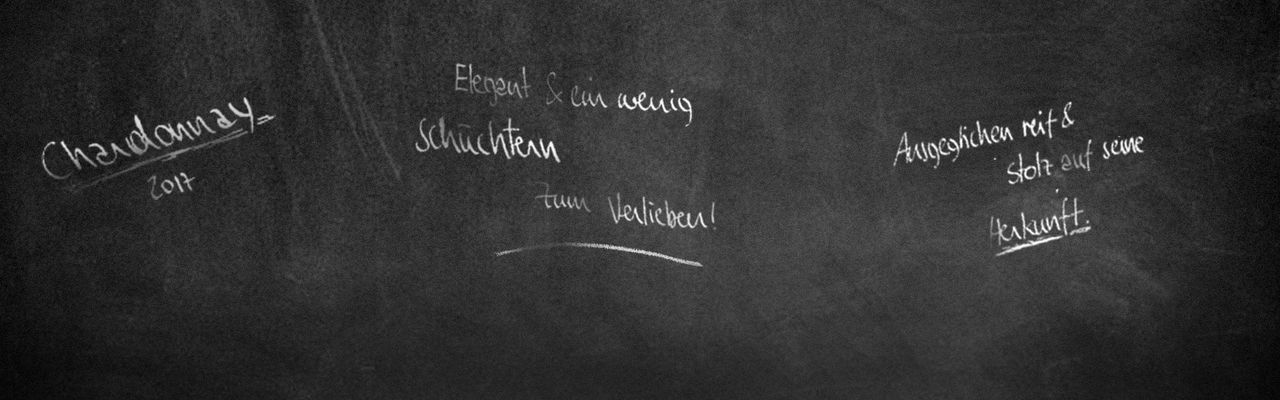 Chardonnay
2017
Elegant & ein wenig
schüchtern
zum Verlieben!
Ausgeglichen reif &
stolz auf seine
Herkunft.